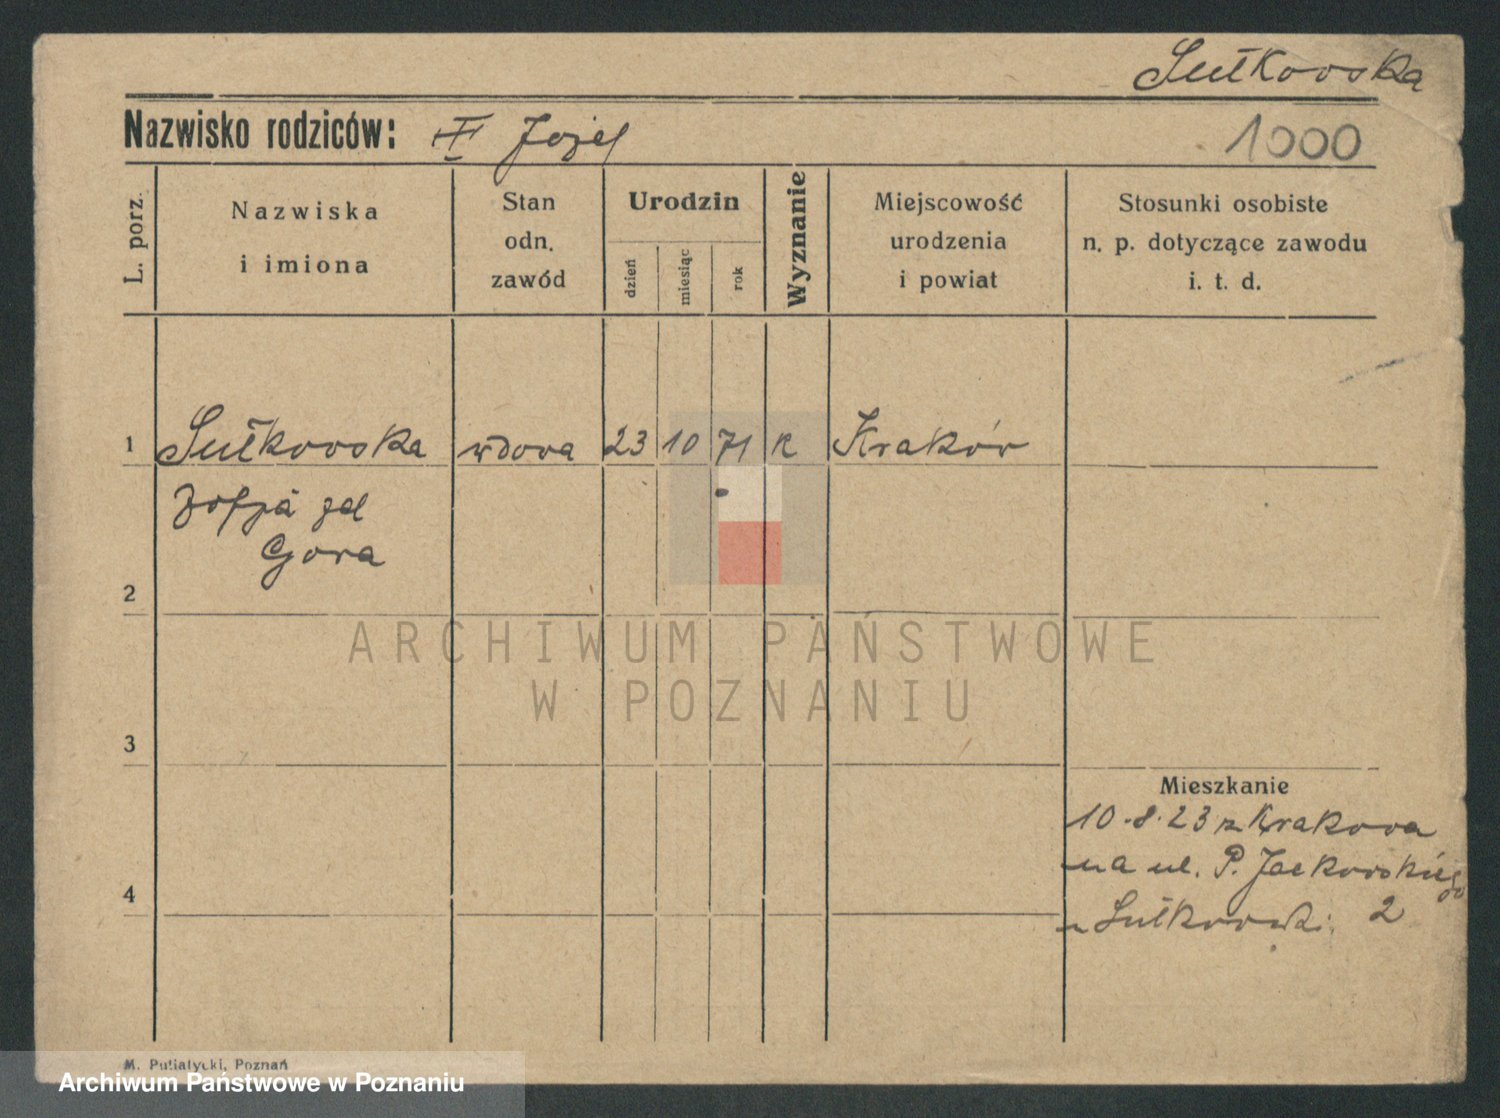 Sułkowska
Nazwisko rodziców: Józef
1000
L. porz.
Nazwiska
i imiona
Stan
odn.
zawód
Urodzin
dzień
miesiąc
rok
Wyznanie
Miejscowość
urodzenia
i powiat
Stosunki osobiste
n. p. dotyczące zawodu
i. t. d.
1 Sułkowska wdowa 23 10 71 k Kraków
Zofja
Gora
2
ARCHIWUM PAŃSTWOWE
W POZNANIU
3
Mieszkanie
10.8.23 z Krakowa
na ul. P. Jackowskiego
u Sułkowski 2
4
M. Putiatycki, Poznań
Archiwum Państwowe w Poznaniu